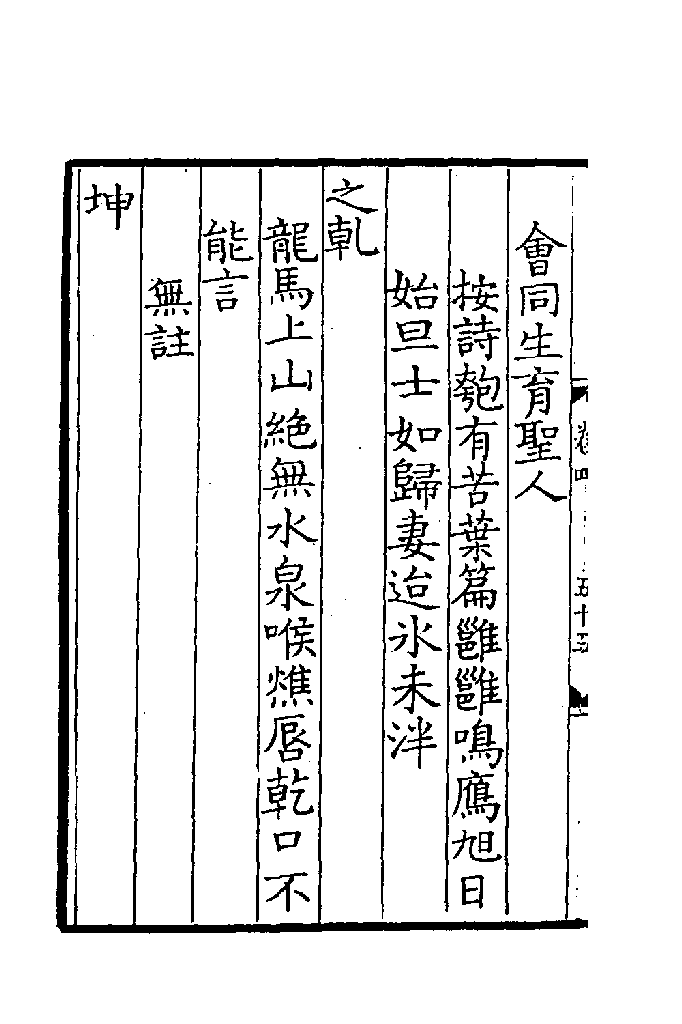 會同生育聖人
按詩匏有苦葉篇雝雝鳴鴈旭日
始旦士如歸妻迨氷未泮
之乹
龍馬上山絶無水泉喉燋唇乾口不
能言
無註
坤
卷四
五十五